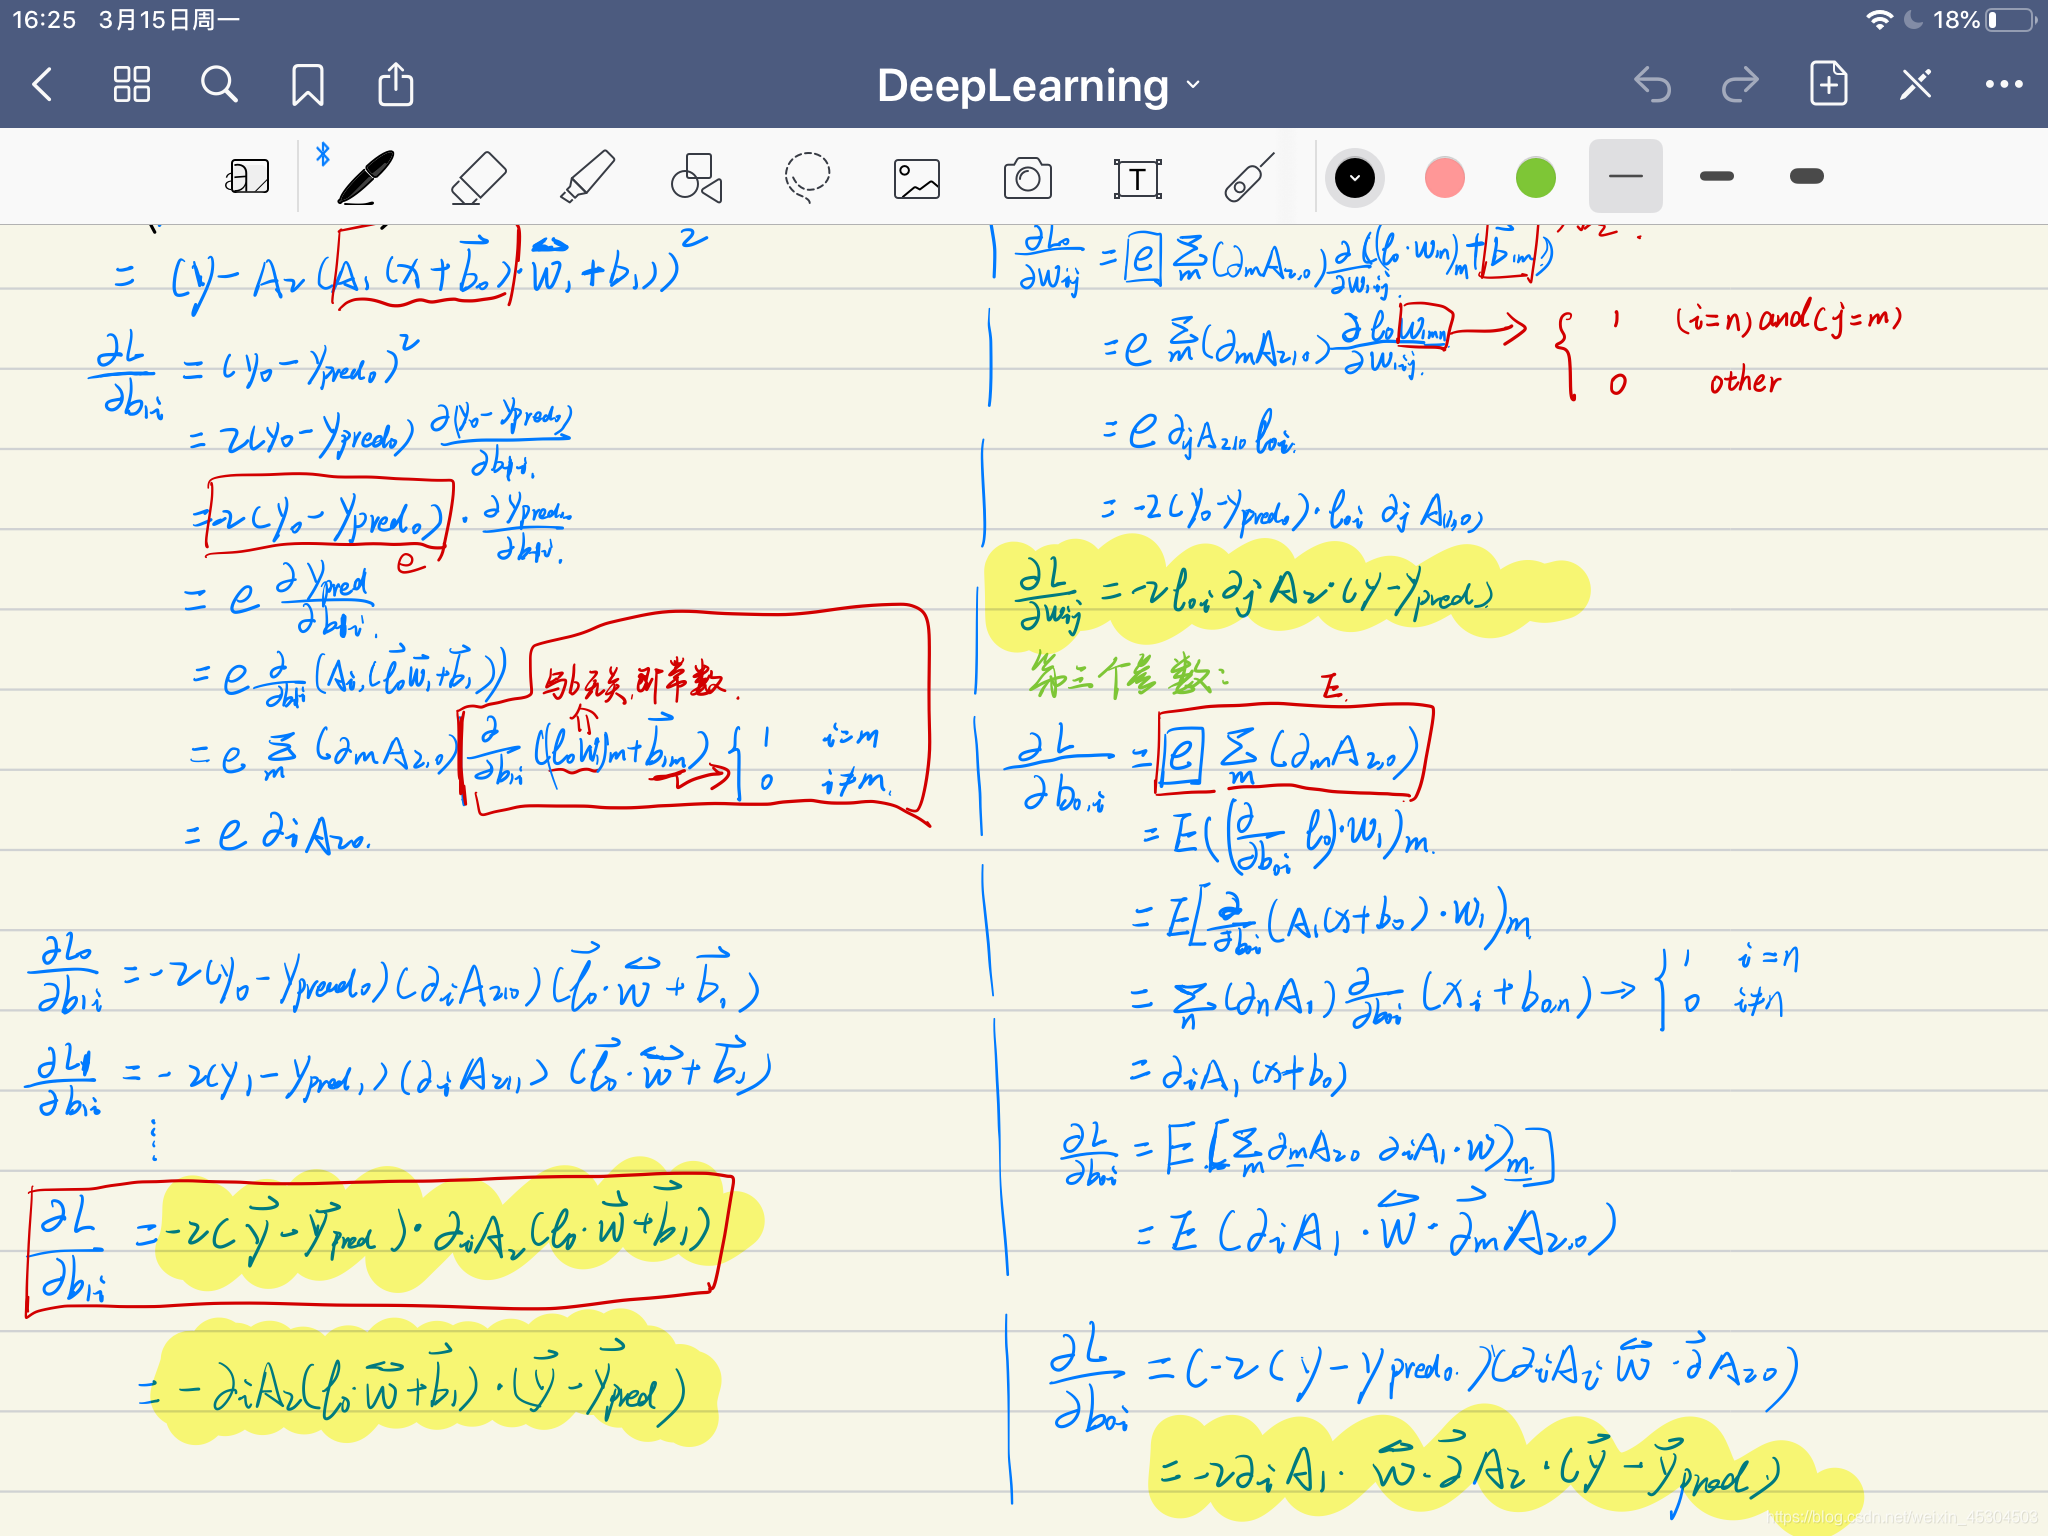 16:25 3月15日周一
18%
DeepLearning
T
= (y - A₂(A₁(x + b⃗₀)·w⃡₁ + b₁))²
∂L/∂b₁ᵢ = (y₀ - ypred₀)²
= 2(y₀ - ypred₀) ∂(y₀ - ypred₀)/∂b₁ᵢ.
= -2(y₀ - ypred₀) · ∂ypred₀/∂b₁ᵢ.
e
= e ∂ypred/∂b₁ᵢ.
= e ∂/∂b₁ᵢ (A₁,(l⃗₀w⃗₁ + b⃗₁))
与b无关,即常数.
= e Σm (∂mA₂,₀) ∂/∂b₁ᵢ ((l₀w₁)m + b⃗₁,m) { 1 i=m
0 i≠m.
= e ∂ᵢA₂₀.
∂L₀/∂b₁ᵢ = -2(y₀ - ypred₀)(∂ᵢA₂,₀)(l⃗₀·w⃡ + b⃗₁)
∂L₁/∂b₁ᵢ = -2(y₁ - ypred,₁)(∂ᵢA₂,₁)(l⃗₀·w⃡ + b⃗₁)
⋮
∂L/∂b₁ᵢ = -2(y⃗ - y⃗pred)·∂ᵢA₂(l₀·w⃗ + b⃗₁)
= -∂ᵢA₂(l₀·w⃡ + b⃗₁)·(y⃗ - y⃗pred)
∂L₀/∂wᵢⱼ = e Σm (∂mA₂,₀) ∂/∂w₁ᵢⱼ ((l₀·w₁n)m + b⃗₁m)
= e Σm (∂mA₂,₀) ∂l₀w₁mn/∂w₁ᵢⱼ. → { 1 (i=n) and (j=m)
0 other
= e ∂ⱼA₂,₀ l₀ᵢ.
= -2(y₀ - ypred₀)·l₀ᵢ ∂ⱼA₍₁,₀₎
∂L/∂wᵢⱼ = -2l₀ᵢ ∂ⱼA₂·(y - ypred)
第三个参数:
E.
∂L/∂b₀,ᵢ = e Σm (∂mA₂,₀)
= E((∂/∂b₀ᵢ l₀)·w₁)m.
= E[∂/∂b₀ᵢ (A₁(x + b₀)·w₁)m
= Σn (∂nA₁) ∂/∂b₀ᵢ (xᵢ + b₀,n) → { 1 i=n
0 i≠n
= ∂ᵢA₁(x + b₀)
∂L/∂b₀ᵢ = E[Σm ∂mA₂₀ ∂ᵢA₁·w)m.]
= E(∂ᵢA₁·w⃡·∂⃗mA₂,₀)
∂L/∂b₀ᵢ = (-2(y - ypred₀.)(∂ᵢAᵢ w⃡·∂⃗A₂₀)
= -2∂ᵢA₁·w⃡·∂⃗A₂·(y⃗ - y⃗pred)
https://blog.csdn.net/weixin_45304503